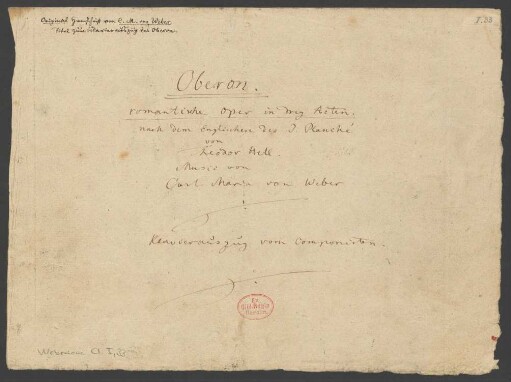 Original Handschrift von C. M. von Weber
Titel zum Klavierauszug des Oberon.
Oberon.
romantische Oper in drey Acten.
nach dem englischen des J. Planché
von
Theodor Hell.
Music von
Carl Maria von Weber
Klavierauszug vom Componisten.